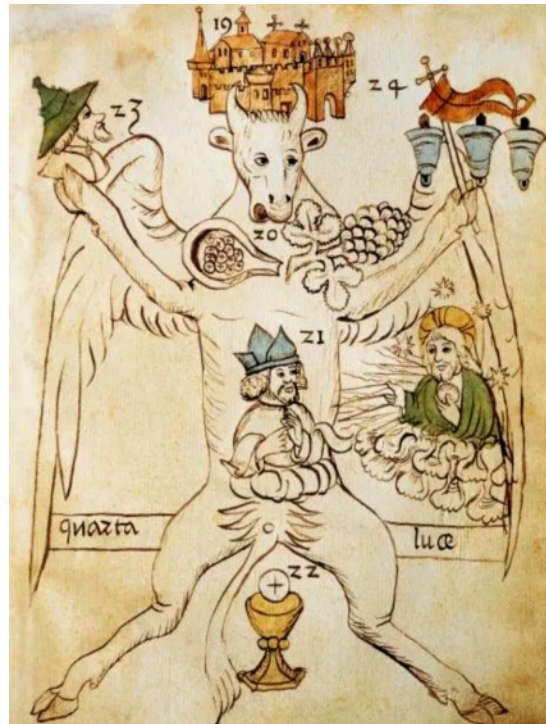 19
24
23
20
21
quarta
luce
22